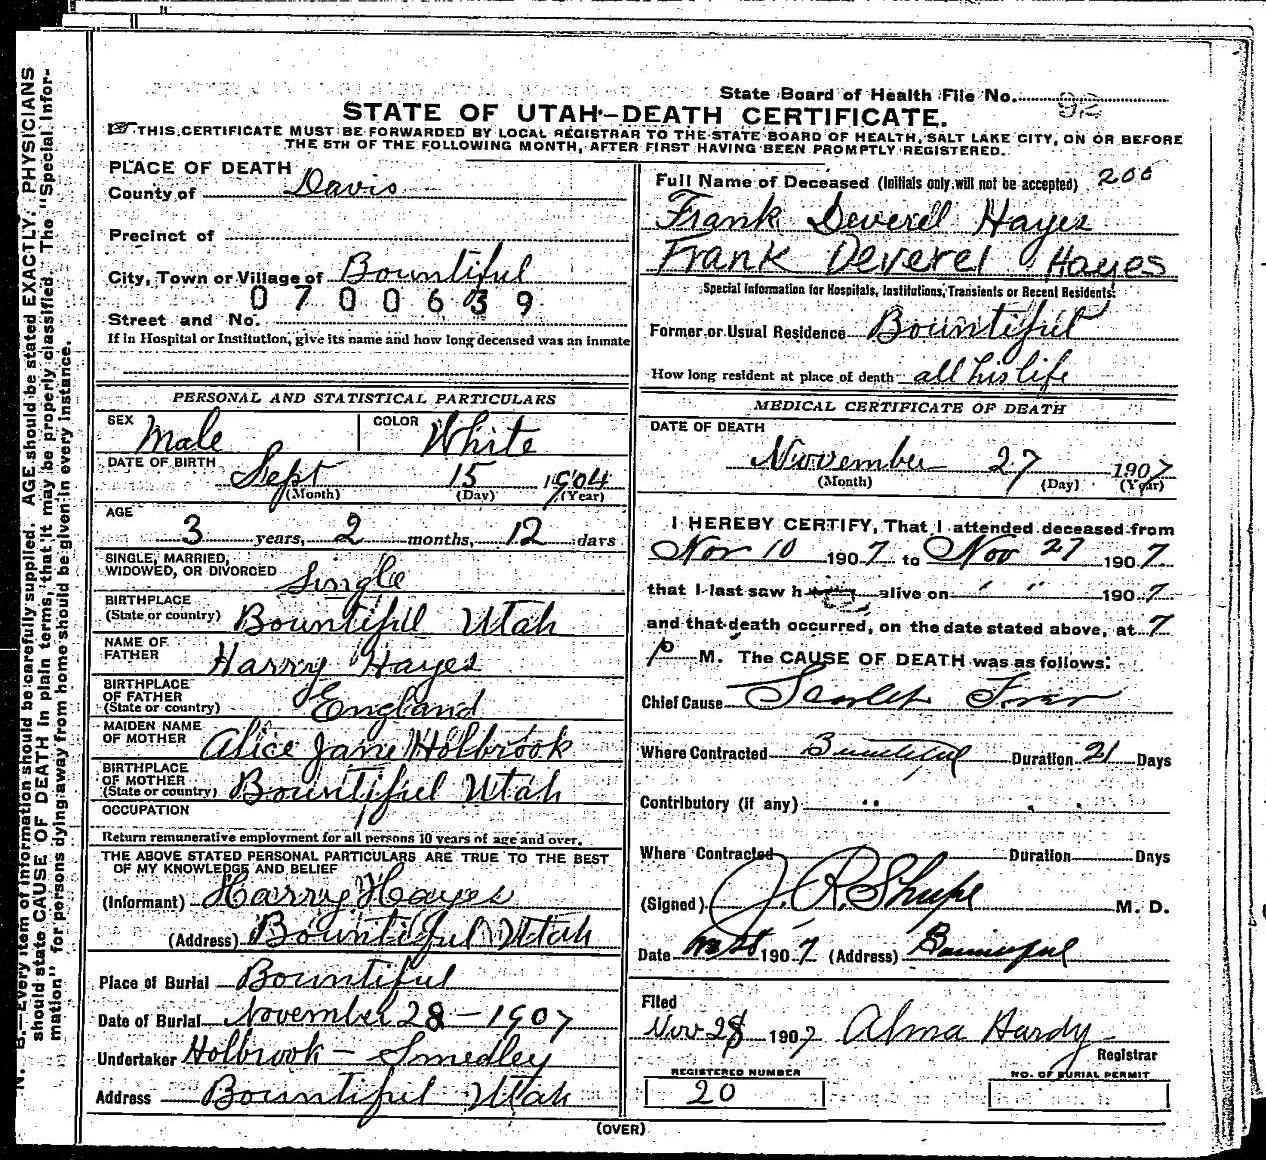 State Board of Health File No. 92
STATE OF UTAH-DEATH CERTIFICATE.
THIS CERTIFICATE MUST BE FORWARDED BY LOCAL REGISTRAR TO THE STATE BOARD OF HEALTH, SALT LAKE CITY, ON OR BEFORE
THE 5TH OF THE FOLLOWING MONTH, AFTER FIRST HAVING BEEN PROMPTLY REGISTERED.
PLACE OF DEATH
County of Davis
Precinct of
City, Town or Village of Bountiful
0700639
Street and No.
If in Hospital or Institution, give its name and how long deceased was an inmate
PERSONAL AND STATISTICAL PARTICULARS
SEX Male COLOR White
DATE OF BIRTH Sept 15 1904
(Month) (Day) (Year)
AGE
3 years, 2 months, 12 days
SINGLE, MARRIED,
WIDOWED, OR DIVORCED Single
BIRTHPLACE
(State or country) Bountiful Utah
NAME OF
FATHER Harry Hayes
BIRTHPLACE
OF FATHER
(State or country) England
MAIDEN NAME
OF MOTHER Alice Jane Holbrook
BIRTHPLACE
OF MOTHER
(State or country) Bountiful Utah
OCCUPATION
Return remunerative employment for all persons 10 years of age and over.
THE ABOVE STATED PERSONAL PARTICULARS ARE TRUE TO THE BEST
OF MY KNOWLEDGE AND BELIEF
(Informant) Harry Hayes
(Address) Bountiful Utah
Place of Burial Bountiful
Date of Burial November 28-1907
Undertaker Holbrook - Smedley
Address Bountiful Utah
Full Name of Deceased (Initials only will not be accepted) 200
Frank Deverell Hayes
Frank Deverel Hayes
Special Information for Hospitals, Institutions, Transients or Recent Residents:
Former or Usual Residence Bountiful
How long resident at place of death all his life
MEDICAL CERTIFICATE OF DEATH
DATE OF DEATH
November 27 1907
(Month) (Day) (Year)
I HEREBY CERTIFY, That I attended deceased from
Nov 10 1907 to Nov 27 1907
that I last saw h alive on " " 1907
and that death occurred, on the date stated above, at 7
p M. The CAUSE OF DEATH was as follows:
Chief Cause Scarlet Fever
Where Contracted Bountiful Duration 21 Days
Contributory (if any)
Where Contracted Duration Days
(Signed) J. R. Shupe M. D.
Date 1907 (Address) Bountiful
Filed
Nov 28 1907 Alma Hardy
Registrar
REGISTERED NUMBER
20
NO. OF BURIAL PERMIT
(OVER)
N. B.—Every item of information should be carefully supplied. AGE should be stated EXACTLY. PHYSICIANS
should state CAUSE OF DEATH in plain terms, that it may be properly classified. The "Special Infor-
mation" for persons dying away from home should be given in every instance.